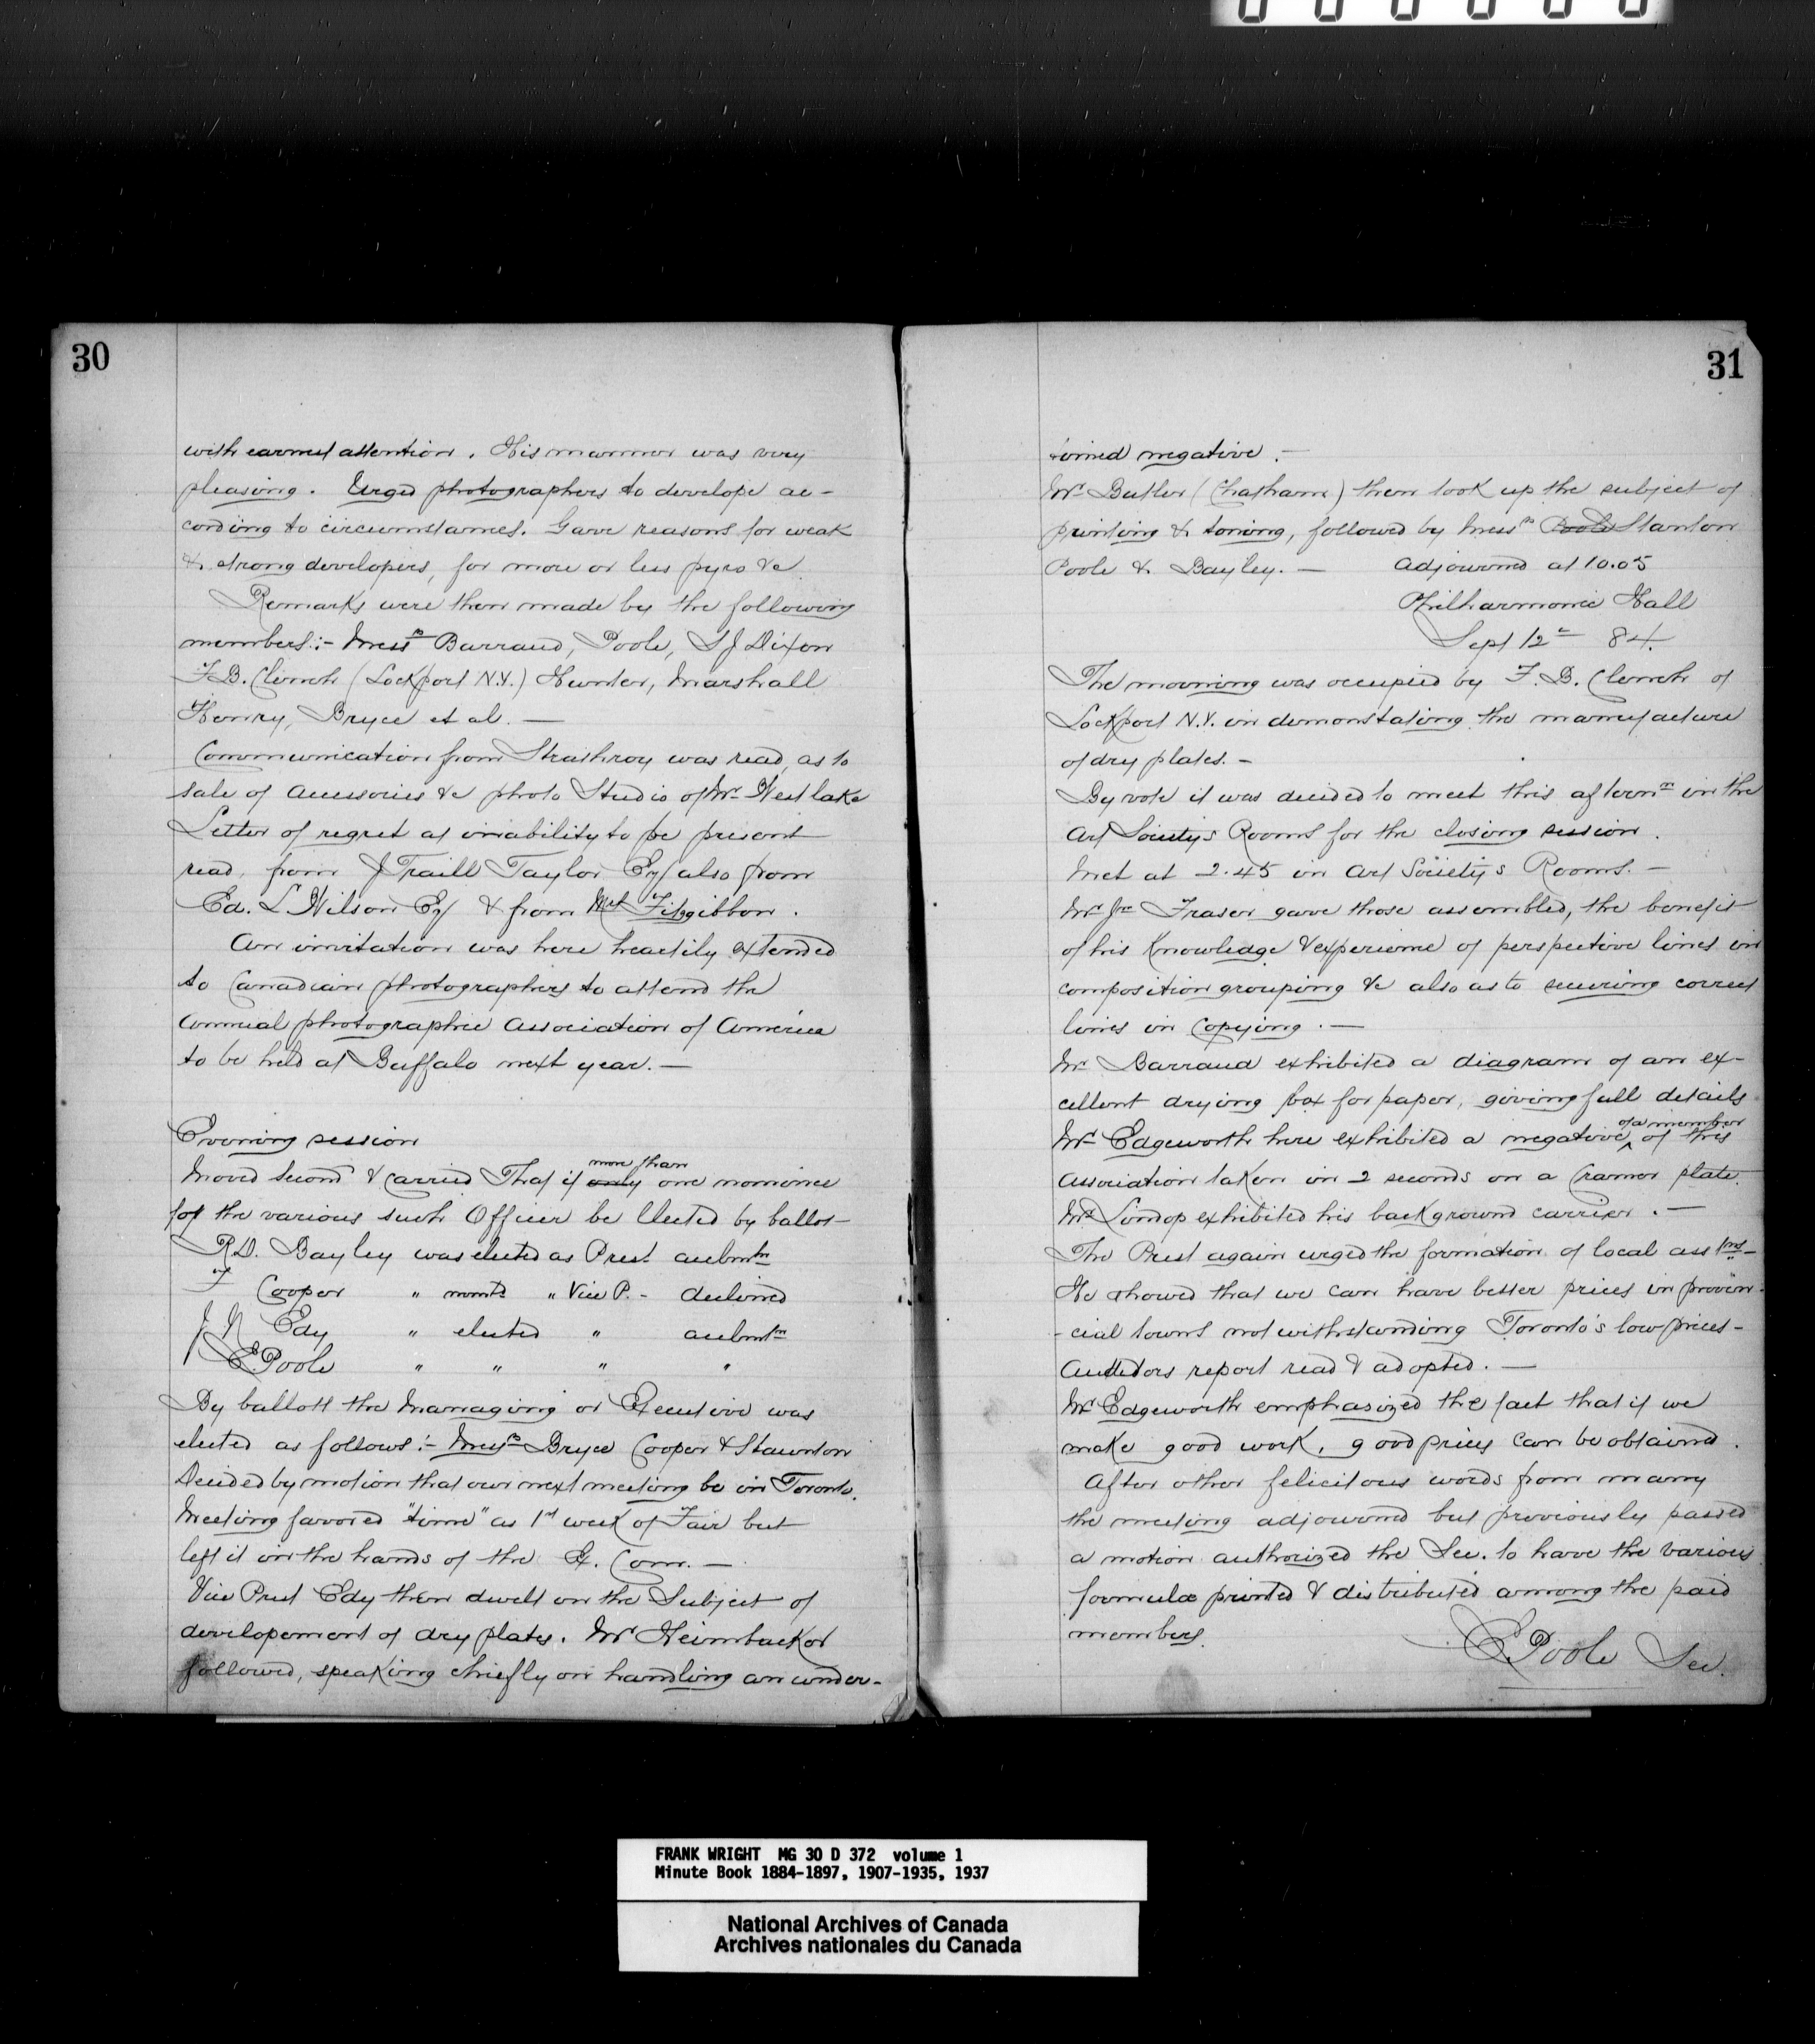 30
with earnest attention. His manner was very
pleasing. Urged photographers to develope ac-
cording to circumstances. Gave reasons for weak
& strong developers, for more or less pyro &c
Remarks were then made by the following
members:- Messrs Barraud, Poole, S J Dixon
F.B. Clench (Lockport N.Y.) Hunter, Marshall
Henry, Bryce et al. —
Communication from Strathroy was read, as to
sale of accessories &c photo Studio of Mr Westlake
Letter of regret at inability to be present
read, from J Traill Taylor Esq also from
Ed. L Wilson Esq & from Fitzgibbon.
An invitation was here heartily extended
to Canadian photographers to attend the
annual photographic association of America
to be held at Buffalo next year. —
Evening session
Moved second & carried That if only more than one nominee
for the various such Officer be Elected by ballot —
R.D. Bayley was elected as Prest acclmtn
F Cooper " nomtd " Vice P. - declined
J N Edy " elected " acclmtn
E Poole " " " "
By ballott the Managing or Executive was
elected as follows:- Messrs Bryce Cooper & Staunton
Decided by motion that our next meeting be in Toronto.
Meeting favored "time" as 1st week of Fair but
left it in the hands of the Ex. Com. —
Vice Prest Edy then dwelt on the Subject of
developement of dry plates. Mr Heimbacker
followed, speaking chiefly on handling an under-
31
timed negative. —
Mr Butler (Chatham) then took up the subject of
printing & toning, followed by Messrs Poole Stanton
Poole & Bayley. — Adjourned at 10.05
Philharmonic Hall
Sept 12th 84.
The morning was occupied by F. B. Clench of
Lockport N.Y. in demonstating the manufacture
of dry plates. -
By vote it was decided to meet this afternn in the
Art Society's Rooms for the closing session.
Met at 2.45 in Art Society's Rooms. —
Mr Jno Fraser gave those assembled, the benefit
of his Knowledge & experience of perspective lines in
composition grouping &c also as to securing correct
lines in Copying. —
Mr Barraud exhibited a diagram of an ex-
cellent drying box for paper, giving full details
Mr Edgeworth here exhibited a negative ^ of a member of this
Association taken in 2 seconds on a Cramer plate.
Mr Lindop exhibited his background carrier. —
The Prest again urged the formation of local ass tns —
He showed that we can have better prices in provin-
-cial towns notwithstanding Toronto's low prices -
Auditors report read & adopted. —
Mr Edgeworth emphasized the fact that if we
make good work, good prices can be obtained.
After other felicitous words from many
the meeting adjourned but previously passed
a motion authorized the Sec. to have the various
formulæ printed & distributed among the paid
members.
E Poole Sec.
FRANK WRIGHT MG 30 D 372 volume 1
Minute Book 1884-1897, 1907-1935, 1937
National Archives of Canada
Archives nationales du Canada